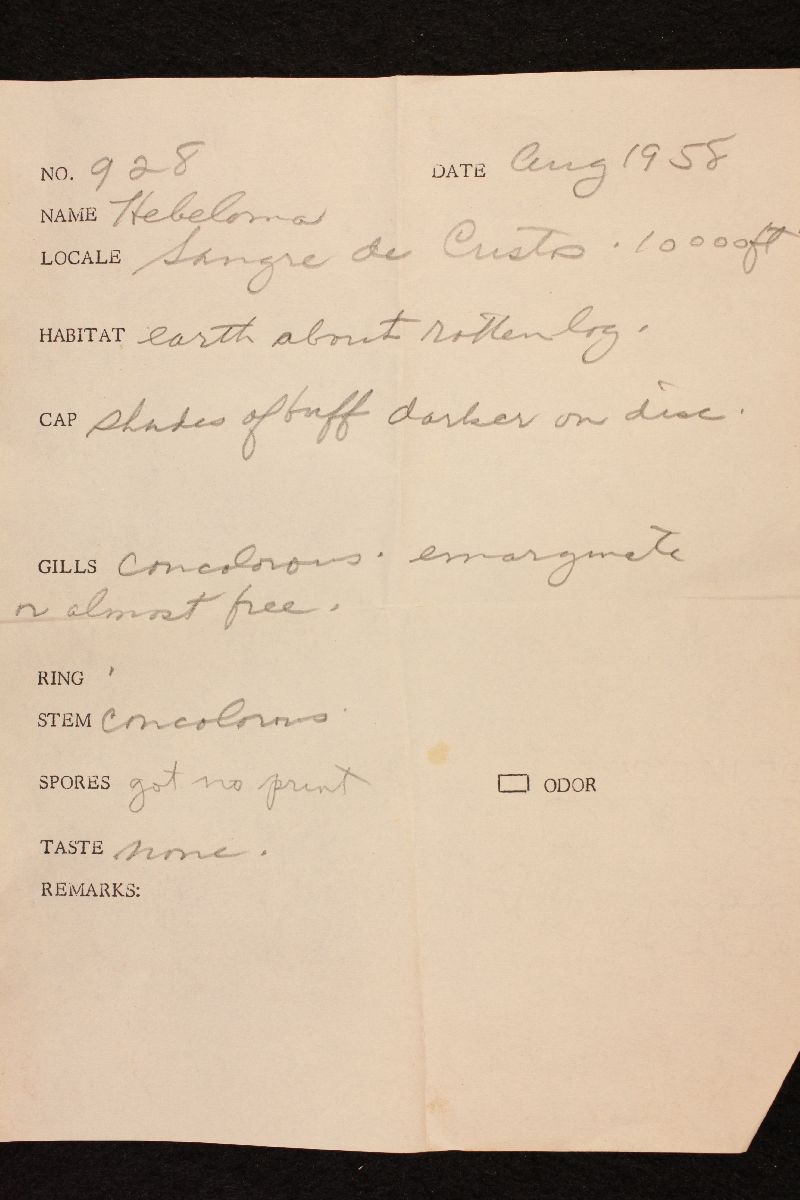 NO. 928 DATE Aug 1958
NAME Hebeloma
LOCALE Sangre de Cristo. 10000ft
HABITAT earth about rotten log.
CAP shades of buff darker on disc.
GILLS Concolorous. emarginate
or almost free.
RING '
STEM Concolorous
SPORES got no print ODOR
TASTE none.
REMARKS: